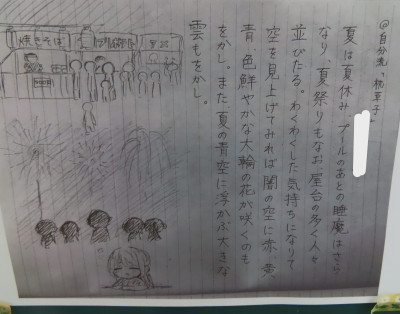 ◎自分流「枕草子」
夏は夏休み、プールのあとの睡魔はさら
なり、夏祭りもなお、屋台の多く人々
並びたる。わくわくした気持ちになりて
空を見上げてみれば闇の空に赤、黄
青、色鮮やかな大輪の花が咲くのも
をかし。また、夏の青空に浮かぶ大きな
雲もをかし。
焼きそば